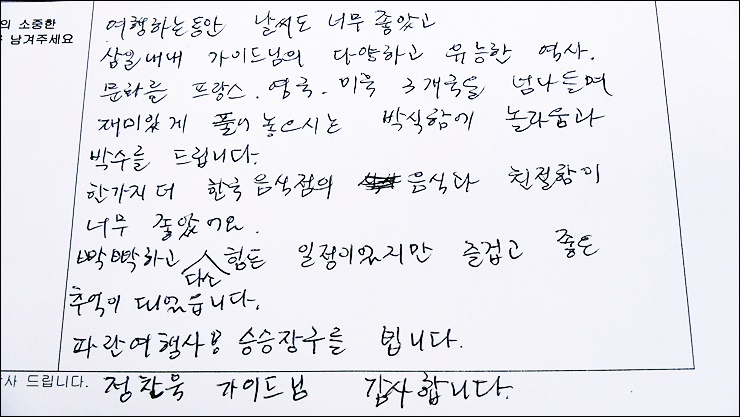 의 소중한
남겨주세요
여행하는동안 날씨도 너무 좋았고
삼일내내 가이드님의 다양하고 유능한 역사.
문화를 프랑스. 영국. 미국 3개국을 넘나들며
재미있게 풀어 놓으시는 박식함에 놀라움과
박수를 드립니다.
한가지더 한국음식점의 음식과 친절함이
너무 좋았어요.
빡빡하고 다소 힘든 일정이었지만 즐겁고 좋은
추억이 되었습니다.
파란여행사의 승승장구를 빕니다.
사 드립니다. 정찬욱 가이드님 감사합니다.